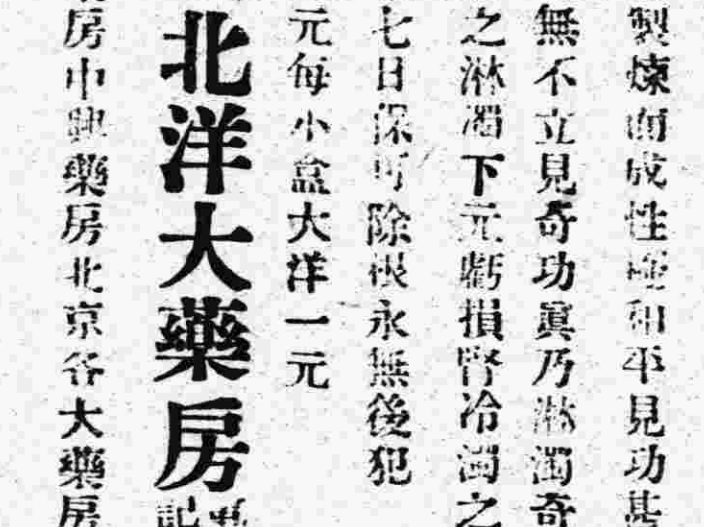 製煉而成性極和平見功甚
無不立見奇功眞乃淋濁奇
之淋濁下元虧損腎冷濁之
七日保可除根永無後犯
元每小盒大洋一元
北洋大藥房
記
房中興藥房北京各大藥房